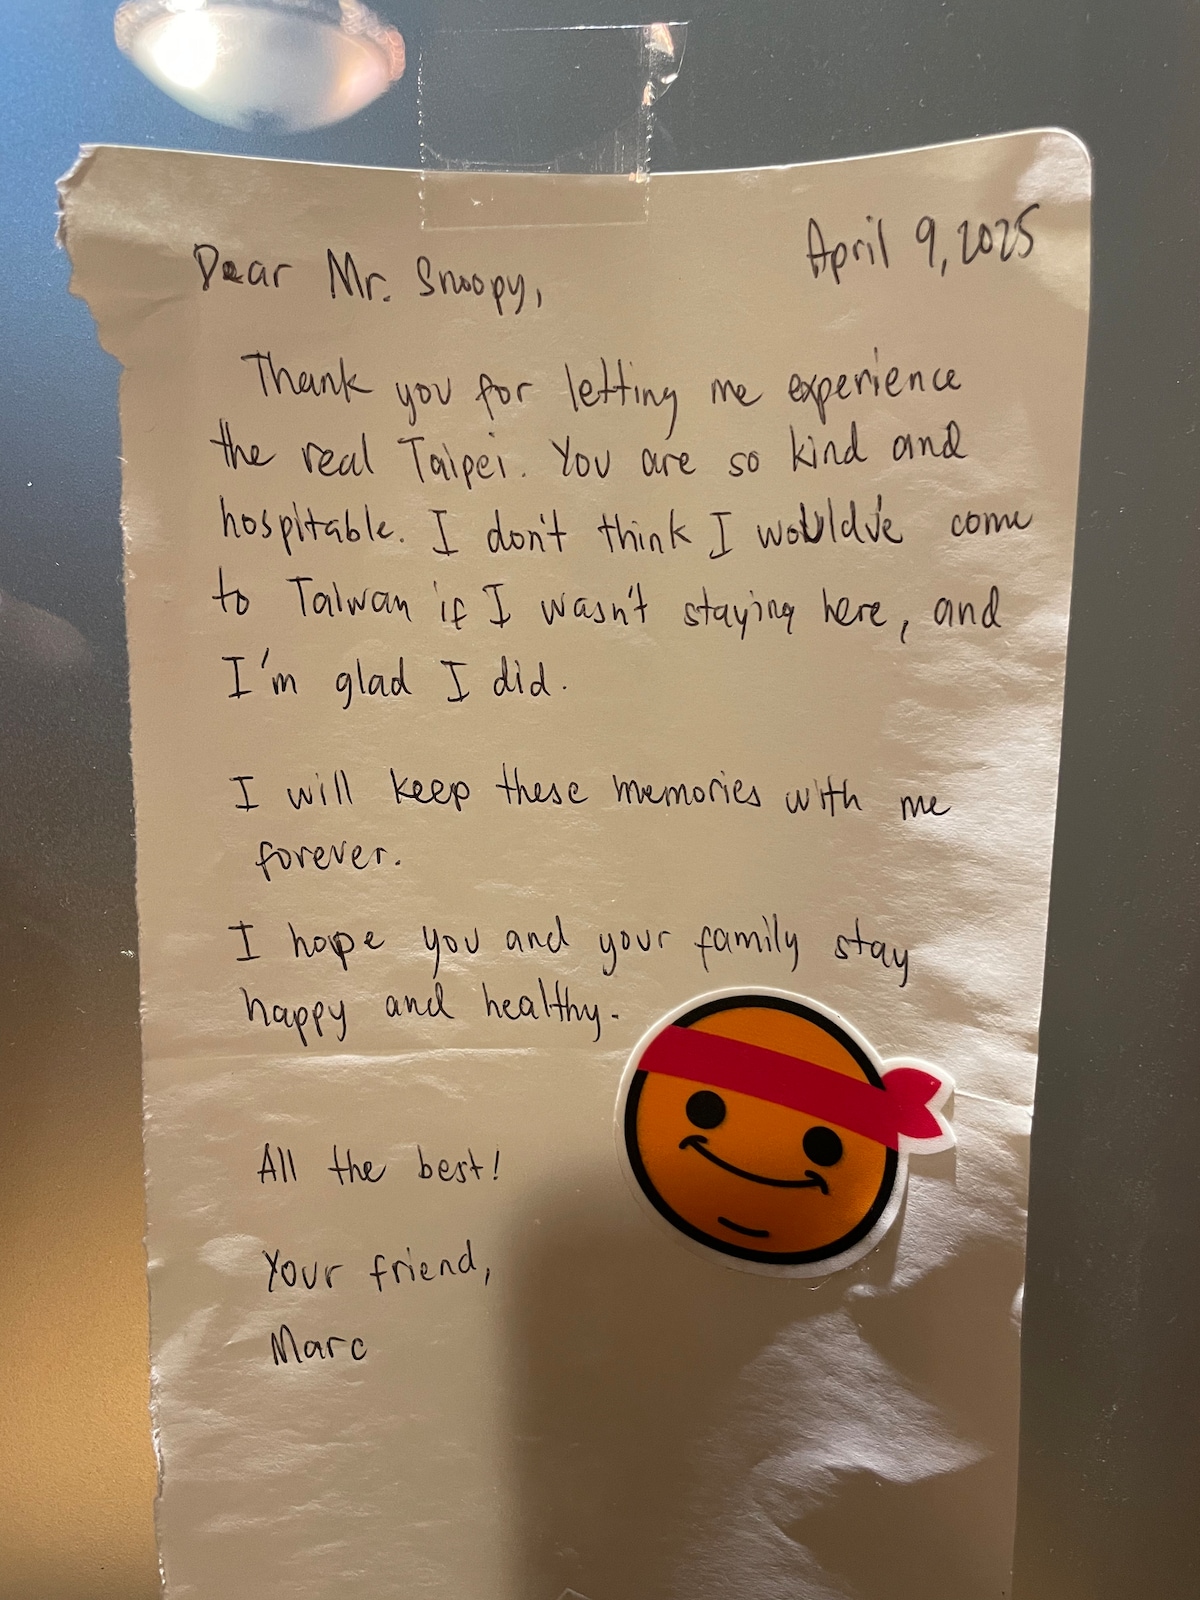 April 9, 2025
Dear Mr. Snoopy,
Thank you for letting me experience
the real Taipei. You are so kind and
hospitable. I don't think I would've come
to Taiwan if I wasn't staying here, and
I'm glad I did.
I will keep these memories with me
forever.
I hope you and your family stay
happy and healthy.
All the best!
Your friend,
Marc